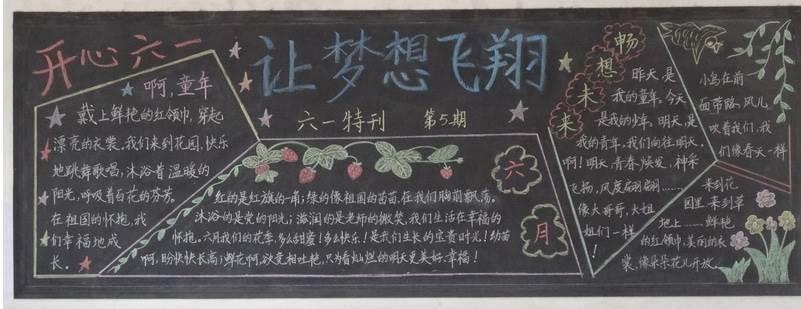 开心六一
让梦想飞翔
六一特刊 第5期
啊,童年
戴上鲜艳的红领巾,穿起
漂亮的衣裳。我们来到花园,快乐
地跳舞歌唱,沐浴着温暖的
阳光,呼吸着百花的芬芳。
在祖国的怀抱,我
们幸福地成
长。
六月
红的是红旗的一角;绿的像祖国的苗苗,在我们胸前飘荡。
沐浴的是党的阳光;滋润的是老师的微笑,我们生活在幸福的
怀抱。六月我们的花季,多么甜蜜!多么快乐!是我们生长的宝贵时光!幼苗
啊,盼快快长高;鲜花啊,欲竞相吐艳,只为着灿烂的明天更美好、幸福!
畅想未来
昨天是
我的童年,今天
是我的少年,明天是
我的青年。我们向往明天,
啊!明天,青春焕发,神采
飞扬,风度翩翩……
像大哥哥,大姐
姐们一样
!
小鸟在前
面带路,风儿
吹着我们,我
们像春天一样
来到花
园里,来到草
地上……鲜艳
的红领巾,美丽的衣
裳,像朵朵花儿开放。